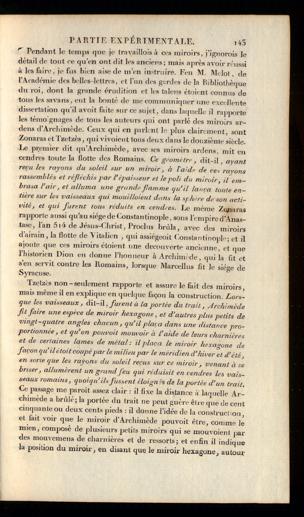 PARTIE EXPÉRIMENTALE. 145
Pendant le temps que je travaillois à ces miroirs, j'ignorois le
détail de tout ce qu'en ont dit les anciens; mais après avoir réussi
à les faire, je fus bien aise de m'en instruire. Feu M. Melot, de
l'Académie des belles-lettres, et l'un des gardes de la Bibliothèque
du roi, dont la grande érudition et les talens étoient connus de
tous les savans, eut la bonté de me communiquer une excellente
dissertation qu'il avoit faite sur ce sujet, dans laquelle il rapporte
les témoignages de tous les auteurs qui ont parlé des miroirs ar-
dens d'Archimède. Ceux qui en parlent le plus clairement, sont
Zonaras et Tzetzès, qui vivoient tous deux dans le douzième siècle.
Le premier dit qu'Archimède, avec ses miroirs ardens, mit en
cendres toute la flotte des Romains. Ce géomètre, dit-il, ayant
reçu les rayons du soleil sur un miroir, à l'aide de ces rayons
rassemblés et réfléchis par l'épaisseur et le poli du miroir, il em-
brasa l'air, et alluma une grande flamme qu'il lança toute en-
tière sur les vaisseaux qui mouilloient dans la sphère de son acti-
vité, et qui furent tous réduits en cendres. Le même Zonaras
rapporte aussi qu'au siége de Constantinople, sous l'empire d'Anas-
tase, l'an 514 de Jésus-Christ, Proclus brûla, avec des miroirs
d'airain, la flotte de Vitalien, qui assiégeoit Constantinople; et il
ajoute que ces miroirs étoient une découverte ancienne, et que
l'historien Dion en donne l'honneur à Archimède, qui la fit et
s'en servit contre les Romains, lorsque Marcellus fit le siége de
Syracuse.
Tzetzès non-seulement rapporte et assure le fait des miroirs,
mais même il en explique en quelque façon la construction. Lors-
que les vaisseaux, dit-il, furent à la portée du trait, Archimède
fit faire une espèce de miroir hexagone, et d'autres plus petits de
vingt-quatre angles chacun, qu'il plaça dans une distance pro-
portionnée, et qu'on pouvoit mouvoir à l'aide de leurs charnières
et de certaines lames de métal: il plaça le miroir hexagone de
façon qu'il étoit coupé par le milieu par le méridien d'hiver et d'été,
en sorte que les rayons du soleil reçus sur ce miroir, venant à se
briser, allumèrent un grand feu qui réduisit en cendres les vais-
seaux romains, quoiqu'ils fussent éloignés de la portée d'un trait.
Ce passage me paroît assez clair: il fixe la distance à laquelle Ar-
chimède a brûlé; la portée du trait ne peut guère être que de cent
cinquante ou deux cents pieds: il donne l'idée de la construction,
et fait voir que le miroir d'Archimède pouvoit être, comme le
mien, composé de plusieurs petits miroirs qui se mouvoient par
des mouvemens de charnières et de ressorts; et enfin il indique
la position du miroir, en disant que le miroir hexagone, autour